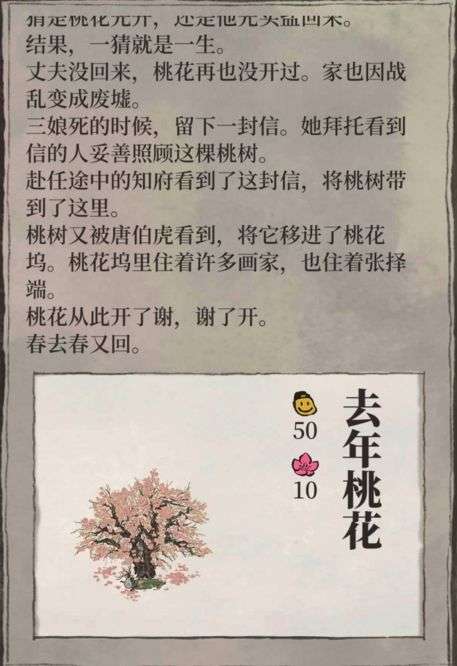 猜是桃花先开，还是他先卖盐回来。
结果，一猜就是一生。
丈夫没回来，桃花再也没开过。家也因战
乱变成废墟。
三娘死的时候，留下一封信。她拜托看到
信的人妥善照顾这棵桃树。
赴任途中的知府看到了这封信，将桃树带
到了这里。
桃树又被唐伯虎看到，将它移进了桃花
坞。桃花坞里住着许多画家，也住着张择
端。
桃花从此开了谢，谢了开。
春去春又回。
去年桃花
50
10